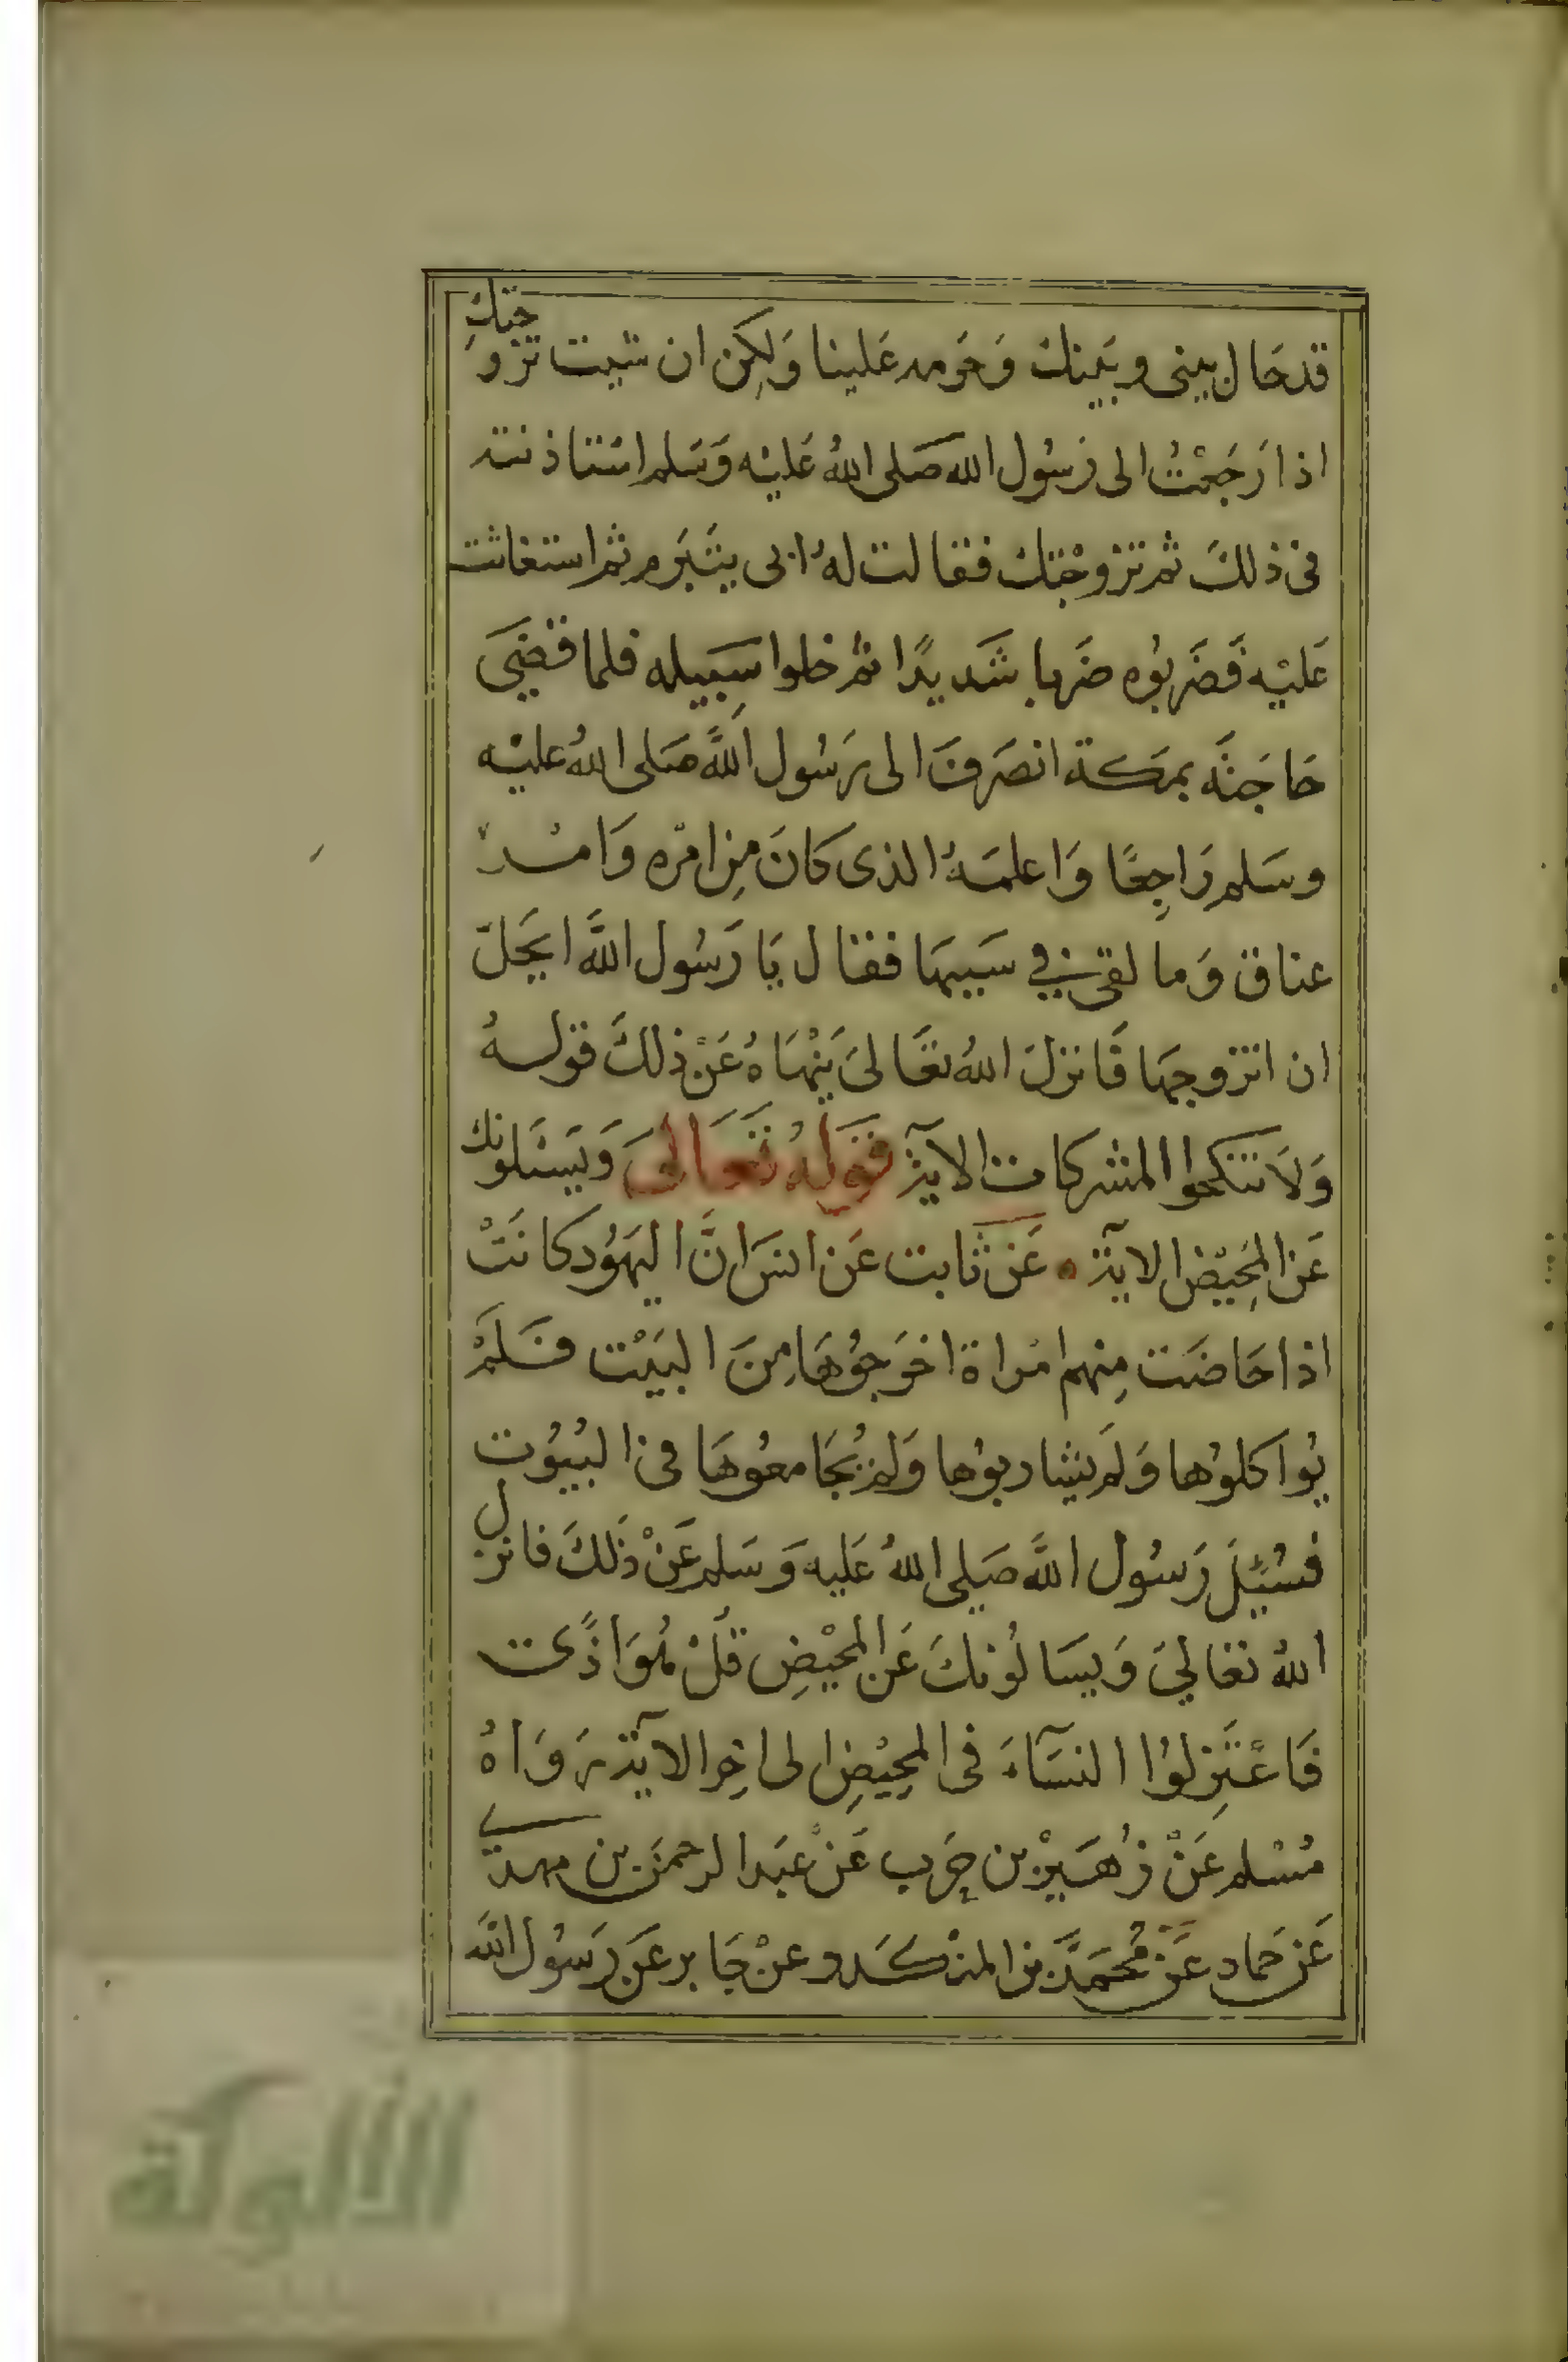 قد حَال بيني وبَينك وَحَرمه عَلينا وَلكِن ان شيت تزوجتكِ
اذا رَجَعْتُ الى رَسُول الله صَلى اللهُ عَليْه وَسَلم استاذنته
في ذلكَ ثم تزوجْتك فقالت لهُ ابي يتَبَرم ثم استغاثت
عَليْه فَضَربُوه ضَربا شَديدًا ثم خلوا سَبِيله فلما قضَى
حَاجَتَه بمكة انصَرفَ الى رَسُول اللَّه صَلى اللهُ عليْه
وسَلم رَاجِعًا وَاعلمَهُ الذى كانَ مِن امْره وَامْر
عناق وَما لقى في سَبيبهَا فقال يَا رَسُول اللَّه ايَحِلّ
ان اتزوجهَا فَانزلَ اللهُ تعَالىَ يَنْهَاهُ عَنْ ذلكَ قولهُ
وَلَا تنكحوا المشركات الآية قَولهُ تَعَالىَ وَيَسْئلونك
عَن المَحِيْض الآية عَن ثابت عَن انسَ انَّ اليَهُود كانَتْ
اذا حَاضَت مِنهم امْراة اخرَجُوهَا مِنَ البَيْت فَلَمْ
يُواكلوُها وَلَم يشاربوُها وَلمْ يُجَامعُوهَا في البُيُوت
فسُئِلَ رَسُول اللَّه صَلى اللهُ عَليه وَسَلم عَنْ ذَلكَ فانزل
اللهُ تعاليَ وَيسَالُونكَ عَن المَحيْضِ قُلْ هُوَ اذًى
فَاعْتَزِلوُا النسَآءَ في المحِيْضِ الى اخِر الآية رَوَاهُ
مُسْلم عَنْ زُهَيْر بن حَرب عَنْ عبَد الرحمن بن مهدي
عَن حَماد عَنْ مُحمَّد بن المنْكَدر عنْ جَابر عَن رَسُول اللَّه
الألوكة